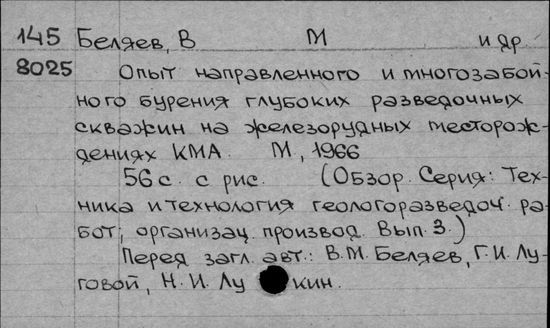 145 Беляев, В М и др
8025 Опыт направленного и многозабой-
ного бурения глубоких разведочных
скважин на железорудных месторож-
дениях КМА. М, 1966
56 с. с рис. (Обзор. Серия: Тех-
ника и технология геологоразведоч. ра-
бот; организац. производ. Вып. 3.)
Перед загл. авт.: В. М. Беляев, Г. И. Лу-
говой, Н. И. Лу кин.